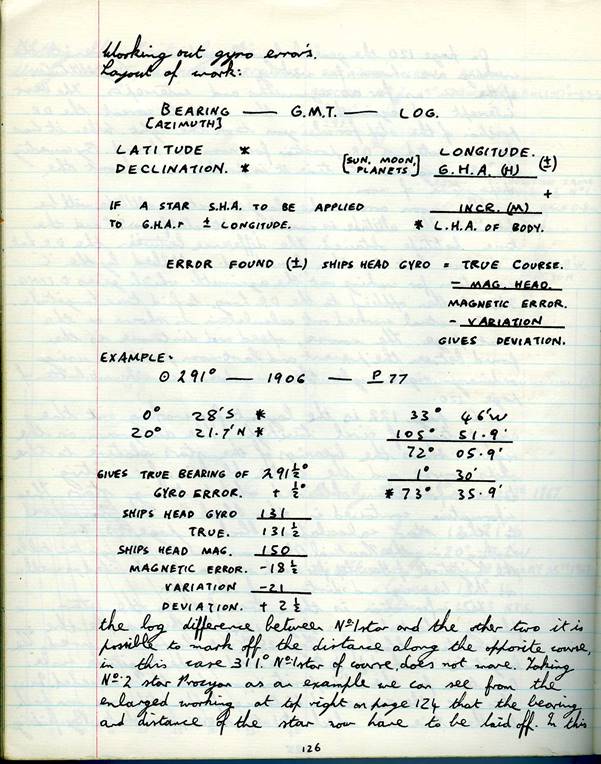 Working out gyro errors.
Layout of work:
BEARING — G.M.T. — LOG.
[AZIMUTH]
LATITUDE * LONGITUDE.
DECLINATION. * [SUN. MOON. PLANETS] G.H.A. (H) (±)
+
IF A STAR S.H.A. TO BE APPLIED INCR. (M)
TO G.H.A.♈ ± LONGITUDE. * L.H.A. OF BODY.
ERROR FOUND (±) SHIPS HEAD GYRO = TRUE COURSE.
- MAG. HEAD.
MAGNETIC ERROR.
- VARIATION
GIVES DEVIATION.
EXAMPLE:
⊙ 291° — 1906 — P 77
0° 28'S * 33° 46'W
20° 21.7'N * 105° 51.9'
72° 05.9'
GIVES TRUE BEARING OF 291½° 1° 30'
GYRO ERROR. + ½° * 73° 35.9'
SHIPS HEAD GYRO 131
TRUE. 131½
SHIPS HEAD MAG. 150
MAGNETIC ERROR. -18½
VARIATION -21
DEVIATION. + 2½
the log difference between Nº1 star and the other two it is
possible to mark off the distance along the opposite course,
in this case 311° Nº1 star of course, does not move. Taking
Nº2 star Procyon as an example we can see from the
enlarged working at top right on page 124 that the bearing
and distance of the star now have to be laid off. In this
126